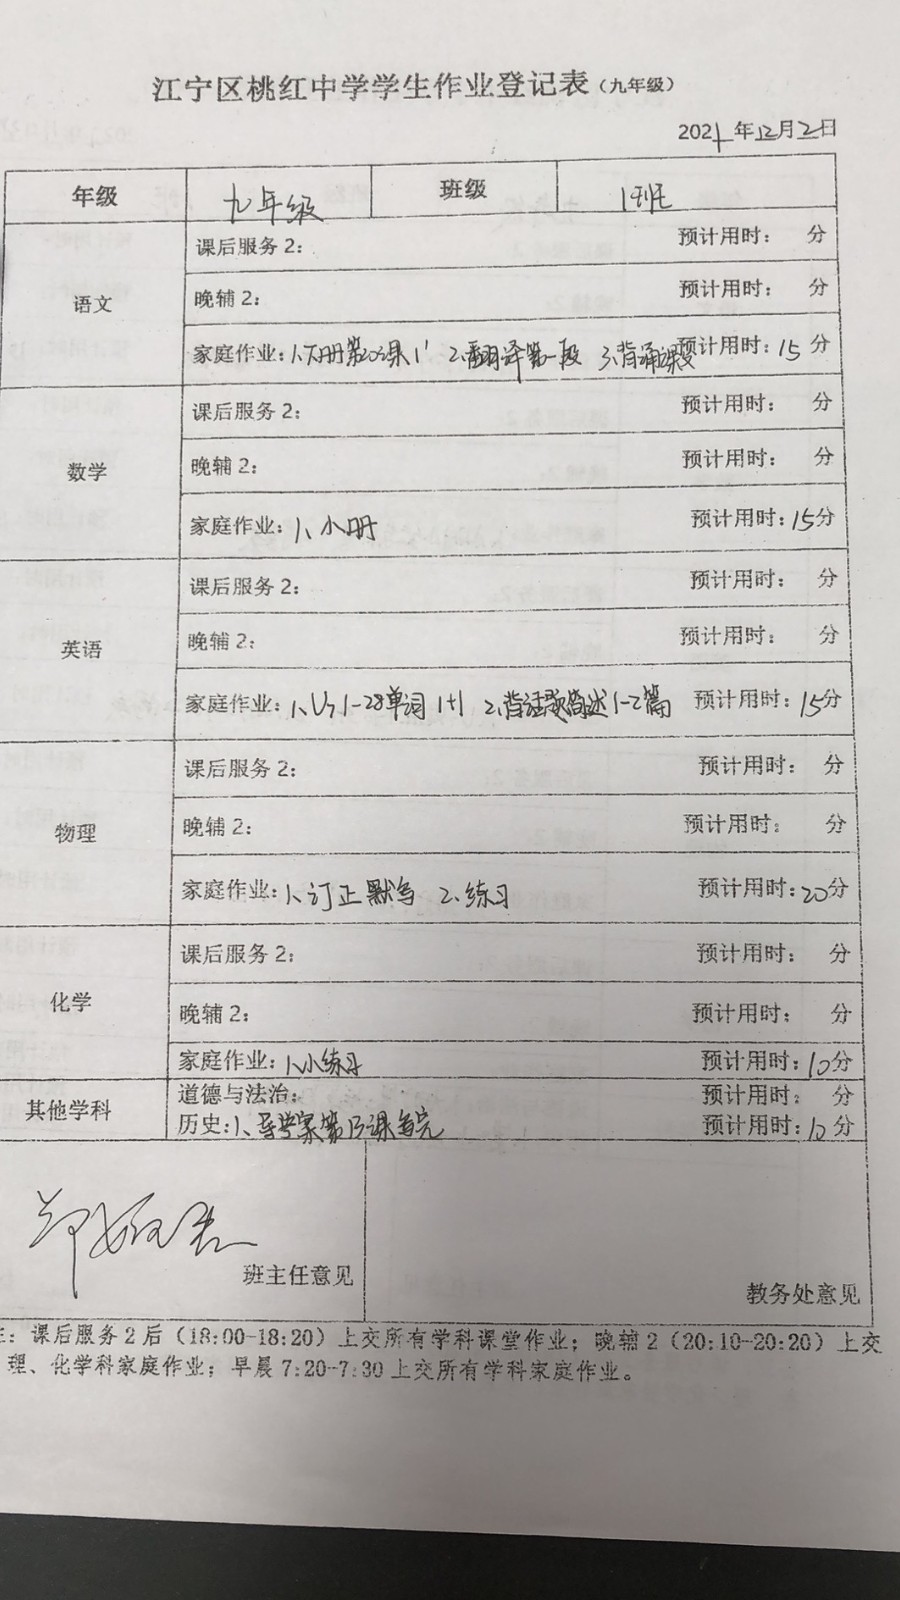 江宁区桃红中学学生作业登记表（九年级）
2021年12月2日
年级 九年级 班级 1班
语文
课后服务2： 预计用时： 分
晚辅2： 预计用时： 分
家庭作业：1、大册第20课1' 2、翻译第一段 3、背诵课 预计用时：15分
数学
课后服务2： 预计用时： 分
晚辅2： 预计用时： 分
家庭作业：1、小册 预计用时：15分
英语
课后服务2： 预计用时： 分
晚辅2： 预计用时： 分
家庭作业：1、U7 1-28单词 1+1 2、背话题简述1-2篇 预计用时：15分
物理
课后服务2： 预计用时： 分
晚辅2： 预计用时： 分
家庭作业：1、订正默写 2、练习 预计用时：20分
化学
课后服务2： 预计用时： 分
晚辅2： 预计用时： 分
家庭作业：1、小练习 预计用时：10分
其他学科
道德与法治： 预计用时： 分
历史：1、导学案第13课写完 预计用时：10分
班主任意见
教务处意见
注：课后服务2后（18:00-18:20）上交所有学科课堂作业；晚辅2（20:10-20:20）上交
理、化学科家庭作业；早晨7:20-7:30上交所有学科家庭作业。